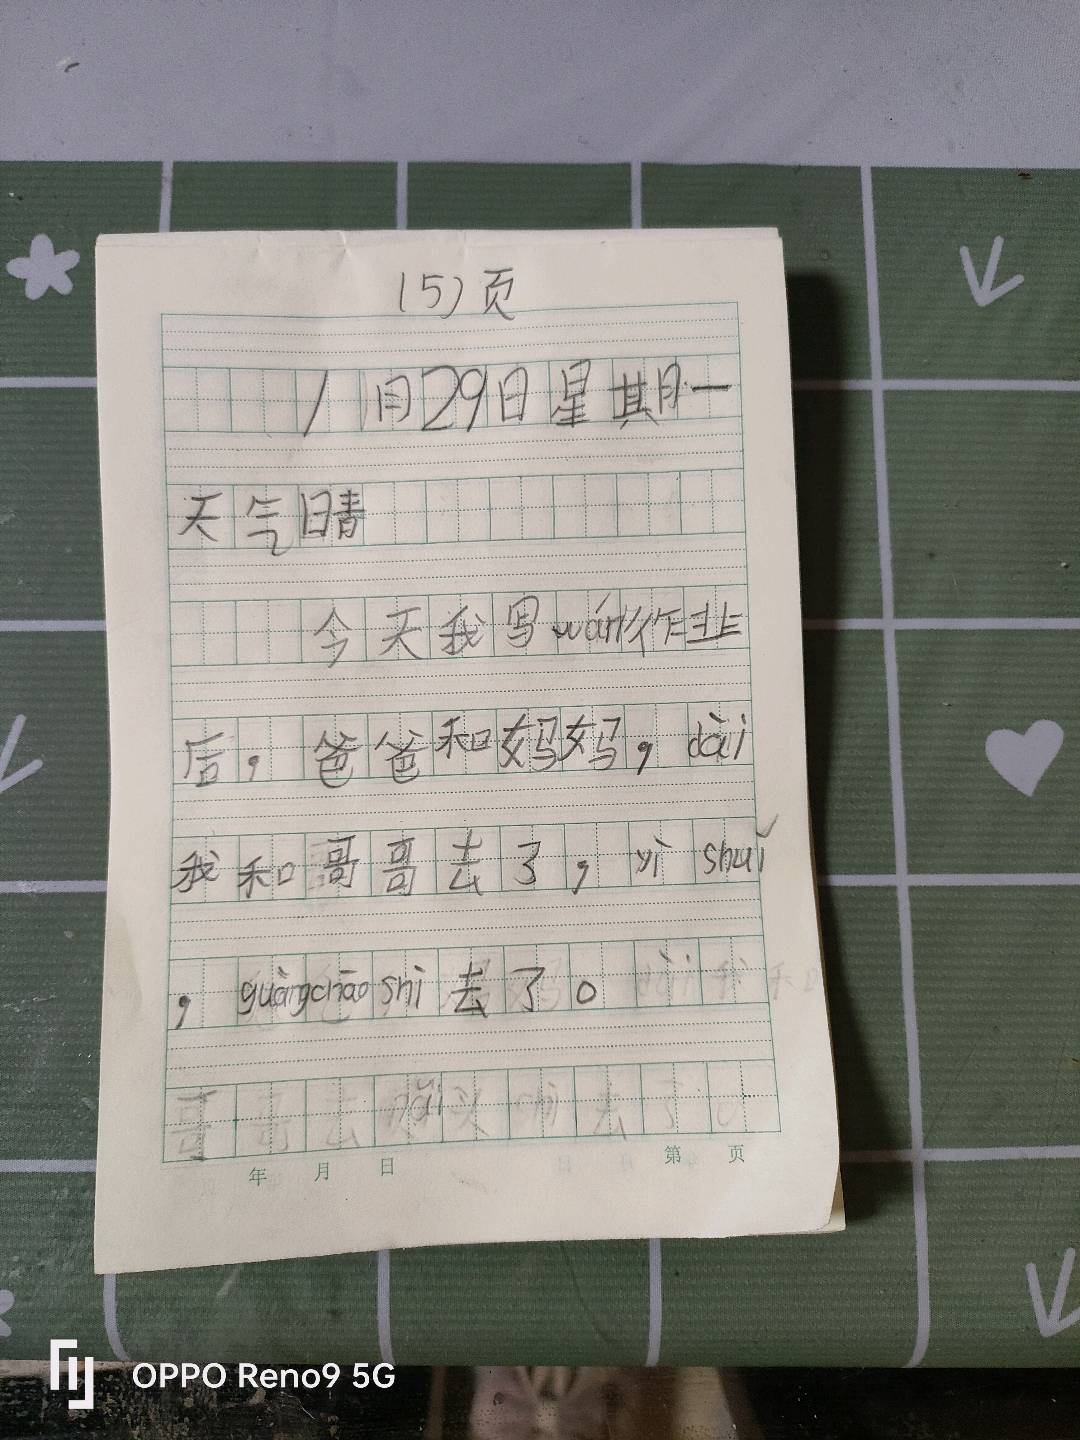 (5)页
1月29日星期一
天气晴
今天我写wán作业
后，爸爸和妈妈，dài
我和哥哥去了，yì shuǐ
，guàngchāo shì 去了。
年 月 日 第 页
OPPO Reno9 5G